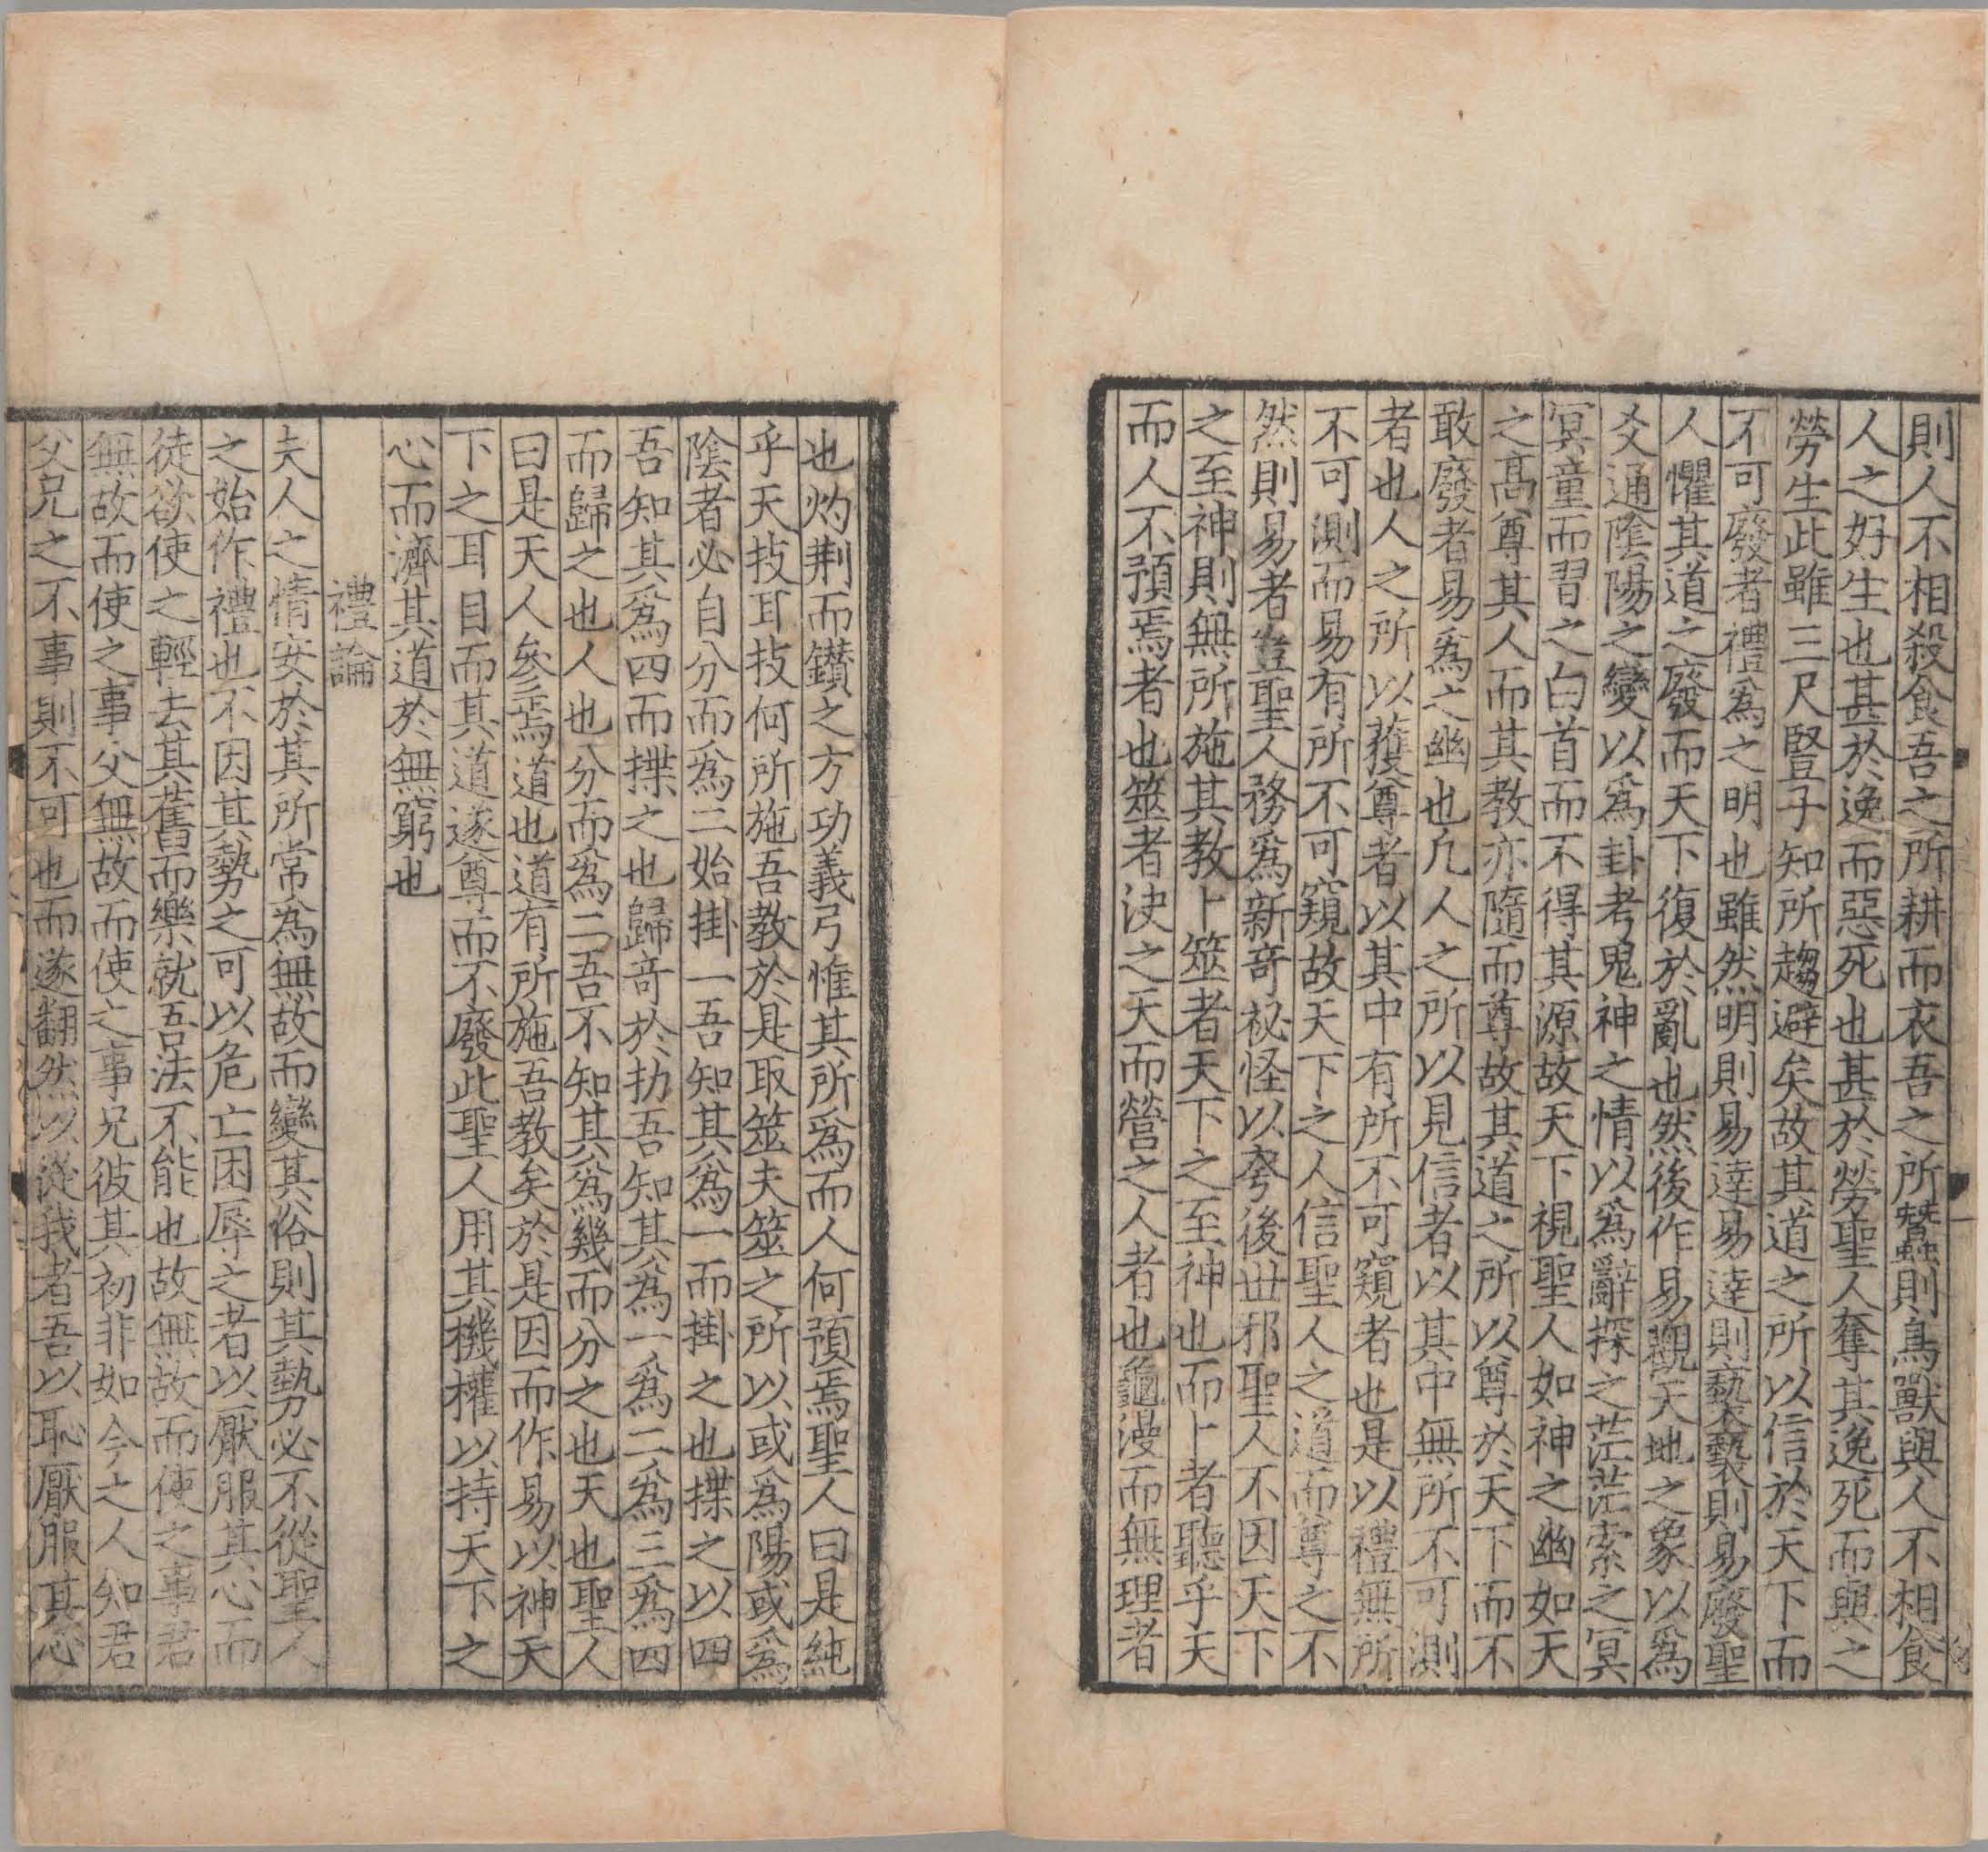 則人不相殺食吾之所耕而衣吾之所蠶則鳥獸與人不相食
人之好生也甚於逸而惡死也甚於勞聖人奪其逸死而與之
勞生此雖三尺豎子知所趨避矣故其道之所以信於天下而
不可廢者禮為之明也雖然明則易達易達則褻褻則易廢聖
人懼其道之廢而天下復於亂也然後作易觀天地之象以為
爻通隂陽之變以為卦考鬼神之情以為辭探之茫茫索之冥
冥童而習之白首而不得其源故天下視聖人如神之幽如天
之髙尊其人而其教亦隨而尊故其道之所以尊於天下而不
敢廢者易為之幽也凢人之所以見信者以其中無所不可測
者也人之所以獲尊者以其中有所不可窺者也是以禮無所
不可測而易有所不可窺故天下之人信聖人之道而尊之不
然則易者豈聖人務為新竒祕怪以夸後世邪聖人不因天下
之至神則無所施其教卜筮者天下之至神也而卜者聽乎天
而人不預焉者也筮者決之天而營之人者也龜漫而無理者
也灼荆而鑚之方功義弓惟其所為而人何預焉聖人曰是純
乎天技耳技何所施吾教於是取筮夫筮之所以或為陽或為
隂者必自分而為二始掛一吾知其為一而掛之也揲之以四
吾知其為四而揲之也歸竒於扐吾知其為一為二為三為四
而歸之也人也分而為二吾不知其為幾而分之也天也聖人
曰是天人參焉道也道有所施吾教矣於是因而作易以神天
下之耳目而其道遂尊而不廢此聖人用其機權以持天下之
心而濟其道於無窮也
禮論
夫人之情安於其所常為無故而變其俗則其勢必不從聖人
之始作禮也不因其勢之可以危亡困辱之者以厭服其心而
徒欲使之輕去其舊而樂就吾法不能也故無故而使之事君
無故而使之事父無故而使之事兄彼其初非如今之人知君
父兄之不事則不可也而遂翻然以從我者吾以恥厭服其心